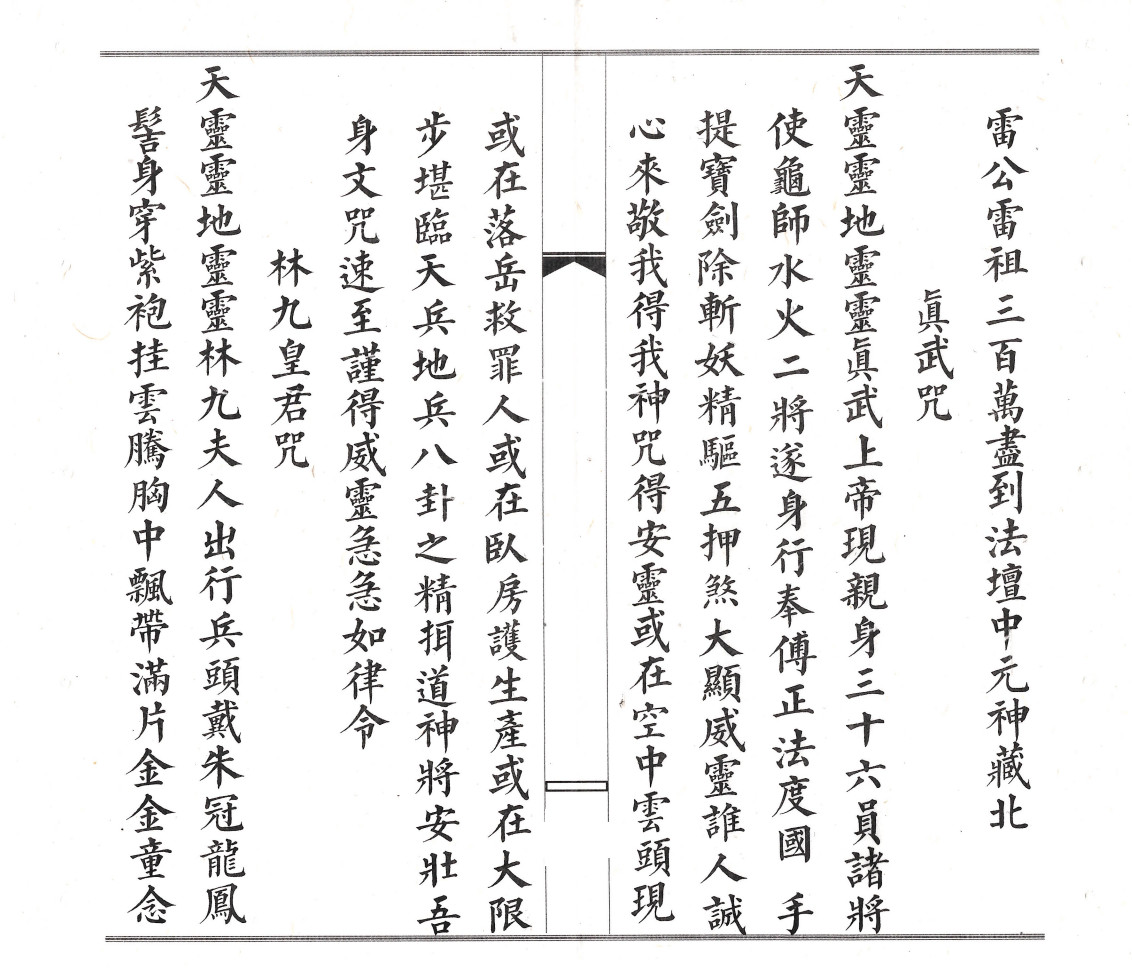 雷公雷祖三百萬盡到法壇中元神藏北
眞武咒
天靈靈地靈靈眞武上帝現親身三十六員諸將
使龜師水火二將遂身行奉傅正法度國 手
提寶劍除斬妖精驅五押煞大顯威靈誰人誠
心來敬我得我神咒得安靈或在空中雲頭現
或在落岳救罪人或在臥房護生產或在大限
步堪臨天兵地兵八卦之精挕道神將安壯吾
身文咒速至謹得威靈急急如律令
林九皇君咒
天靈靈地靈靈林九夫人出行兵頭戴朱冠龍鳳
髻身穿紫袍挂雲騰胸中飄帶滿片金金童念